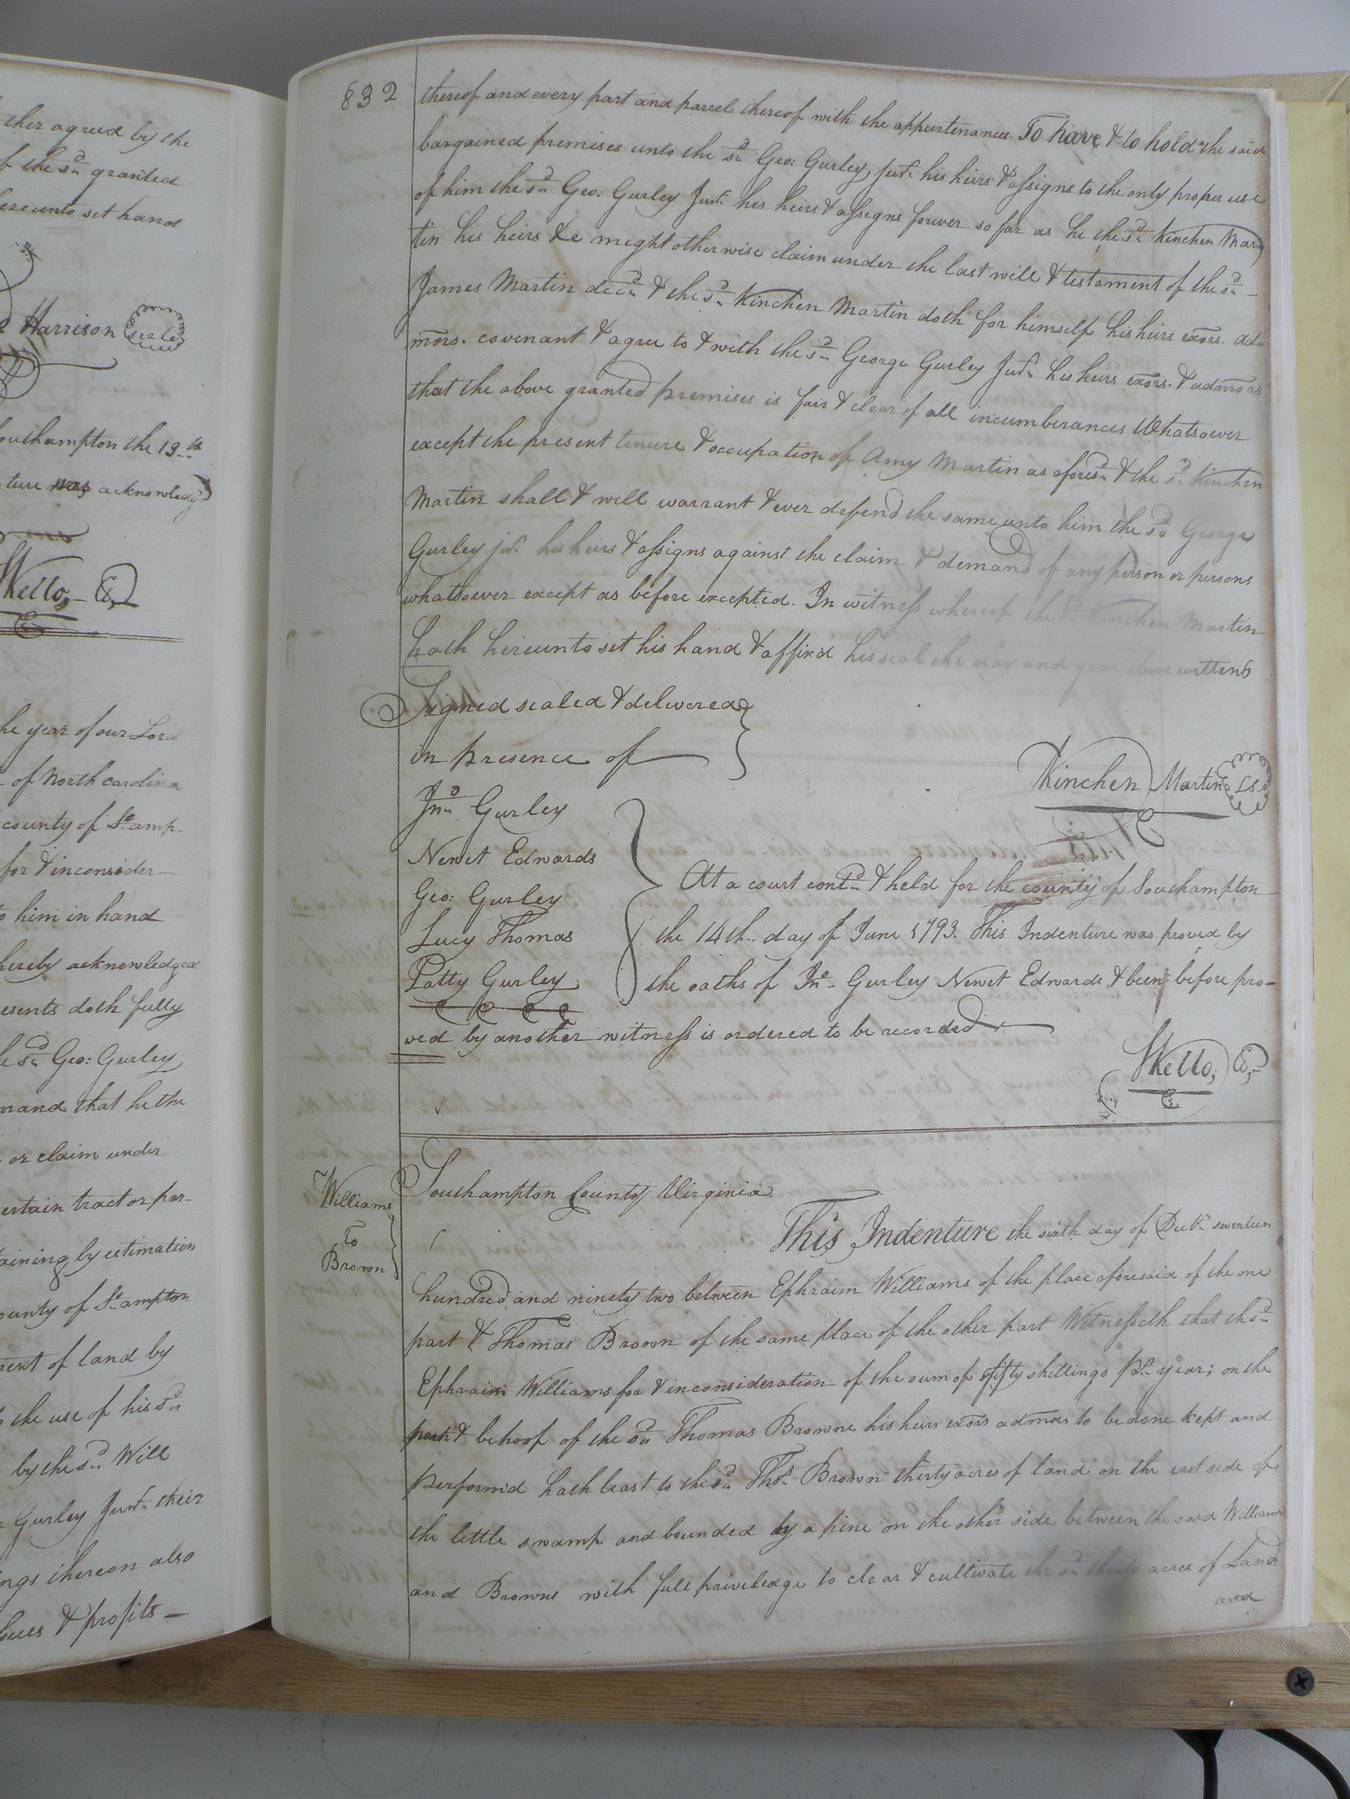 ther agreed by the
f the sd. granted
ereunto set hand
Harrison seale
outhampton the 13th
ture was acknowledg
SKello, C,
he year of our Lord
of North carolina
county of So. amp-
for & inconsider-
to him in hand
hereby acknowledged
esents doth fully
he sd. Geo: Gurley
mand that he the
or claim under
certain tract or par-
taining by estimation
ounty of So. ampton
ment of land by
the use of his sd.
by the sd. Will
Gurley Junr. their
ings thereon also
sues & profits-
832
thereof and every part and parcel thereof with the appurtenances To have & to hold the said
bargained premises unto the sd. Geo: Gurley, jur. his heirs & assigns to the only proper use
of him the sd. Geo: Gurley Junr. his heirs & assigns forever so far as he the sd. Kinchen Mar
tin his heirs &c might otherwise claim under the last will & testament of the sd.-
James Martin decd. & the sd. Kinchen Martin doth for himself his heirs exors. ad-
mors. covenant & agree to & with the sd. George Gurley Junr. his heirs exors. & admors
that the above granted premises is fair & clear of all incumberances Whatsoever
except the present tenure & occupation of Amy Martin as aforesd. & the sd. Kinchen
Martin shall & will warrant & ever defend the same unto him the sd. George
Gurley jr. his heirs & assigns against the claim & demand of any person or persons
whatsoever except as before excepted. In witness whereof the sd. Kinchen Martin
hath hereunto set his hand & affixd his seal the day and year above written
Signed sealed & delivered
in presence of
Kinchen Martin LS.
Jno. Gurley
Newit Edwards
Geo: Gurley
Lucy Thomas
Patty Gurley
At a court contd. & held for the county of Southampton
the 14th. day of June 1793. This Indenture was proved by
the oaths of Jno. Gurley Newit Edwards & been before pro-
ved by another witness is ordered to be recorded
SKello, C,
Williams
To
Brown
Southampton County Virginia
This Indenture the sixth day of Decbr. seventeen
hundred and ninety two between Ephraim Williams of the place aforesaid of the one
part & Thomas Brown of the same place of the other part Witnesseth that the sd.
Ephraim Williams for & inconsideration of the sum of fifty shillings pr. year; on the
part & behoof of the sd. Thomas Browne his heirs exors admors to be done kept and
performd hath least to the sd. Thos. Brown thirty acres of land on the east side of
the little swamp and bounded by a pine on the other side between the said Williams
and Browns with full priviledge to clear & cultivate the sd. thirty acres of Land
and